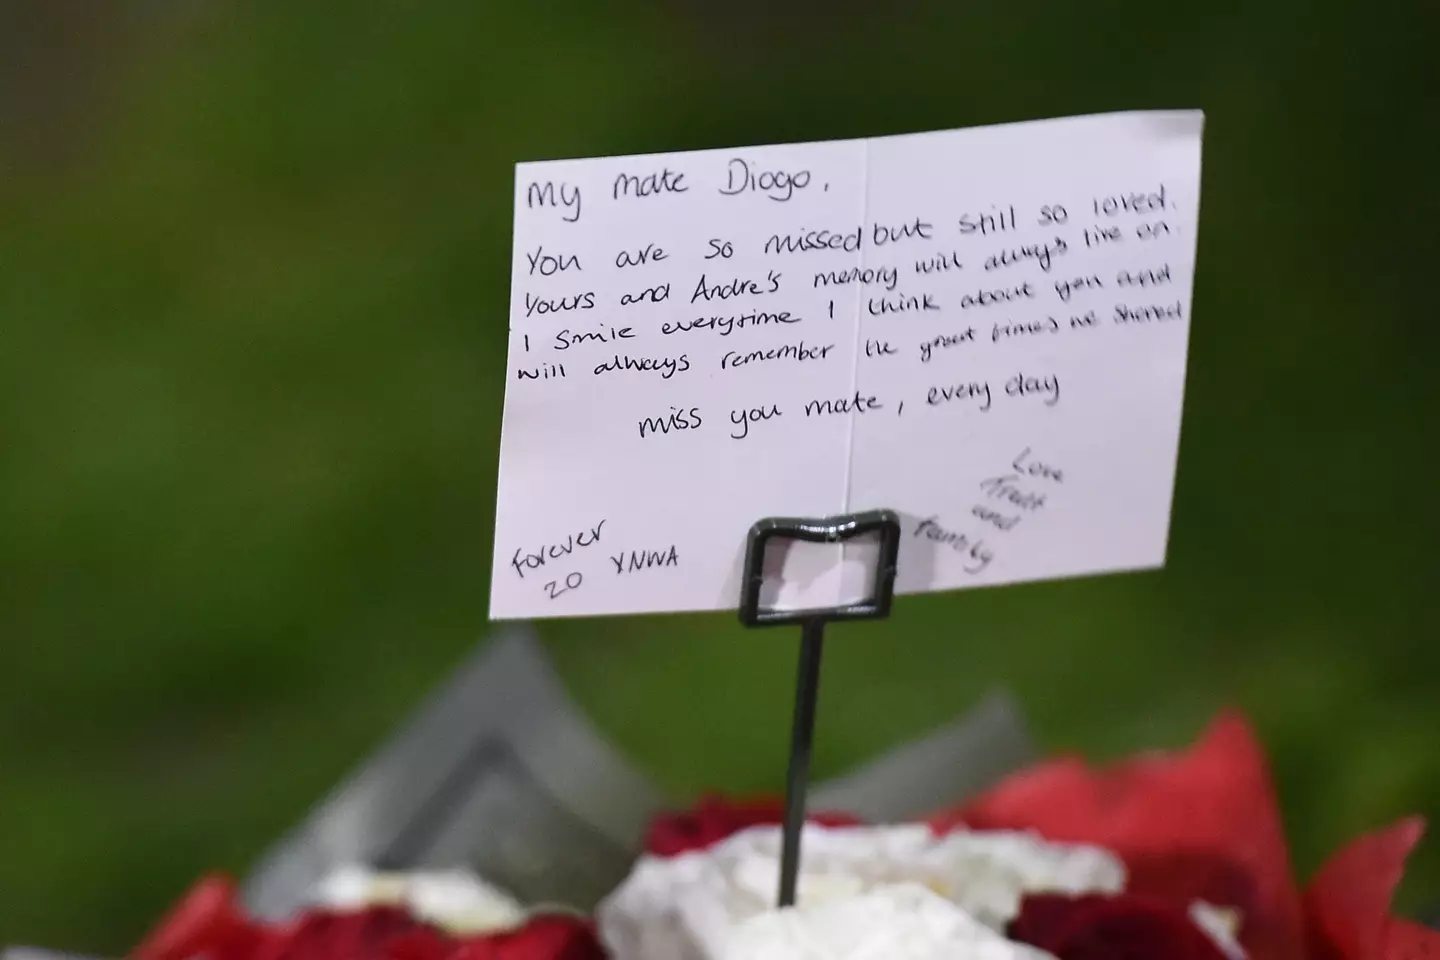 My mate Diogo,
You are so missed but still so loved.
Yours and Andre's memory will always live on.
I smile everytime I think about you and
will always remember the great times we shared
miss you mate, every day
Love
Trent
and
family
Forever
20 YNWA